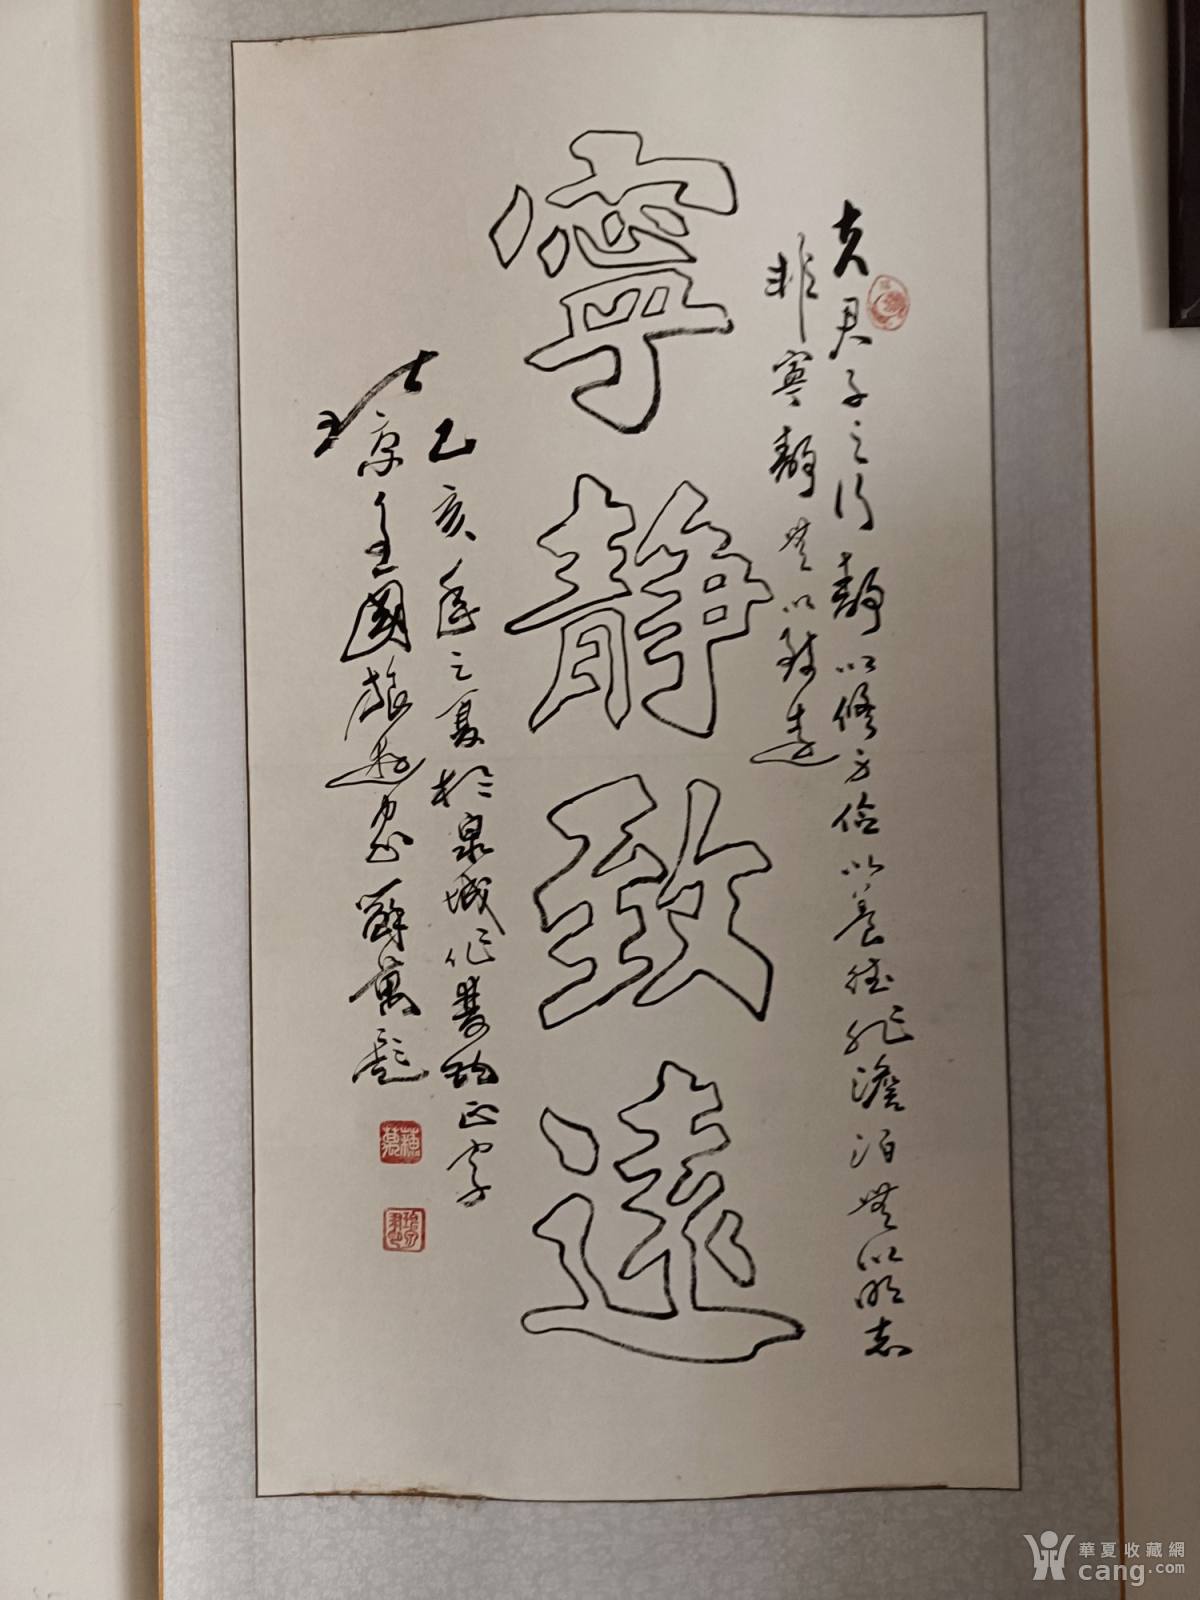 夫君子之行靜以修身儉以養德非澹泊無以明志
非寧靜無以致遠
寧靜致遠
乙亥年之夏於泉城作雙鈎正字
京全國旅遊家蘇萬題
華夏收藏網
cang.com